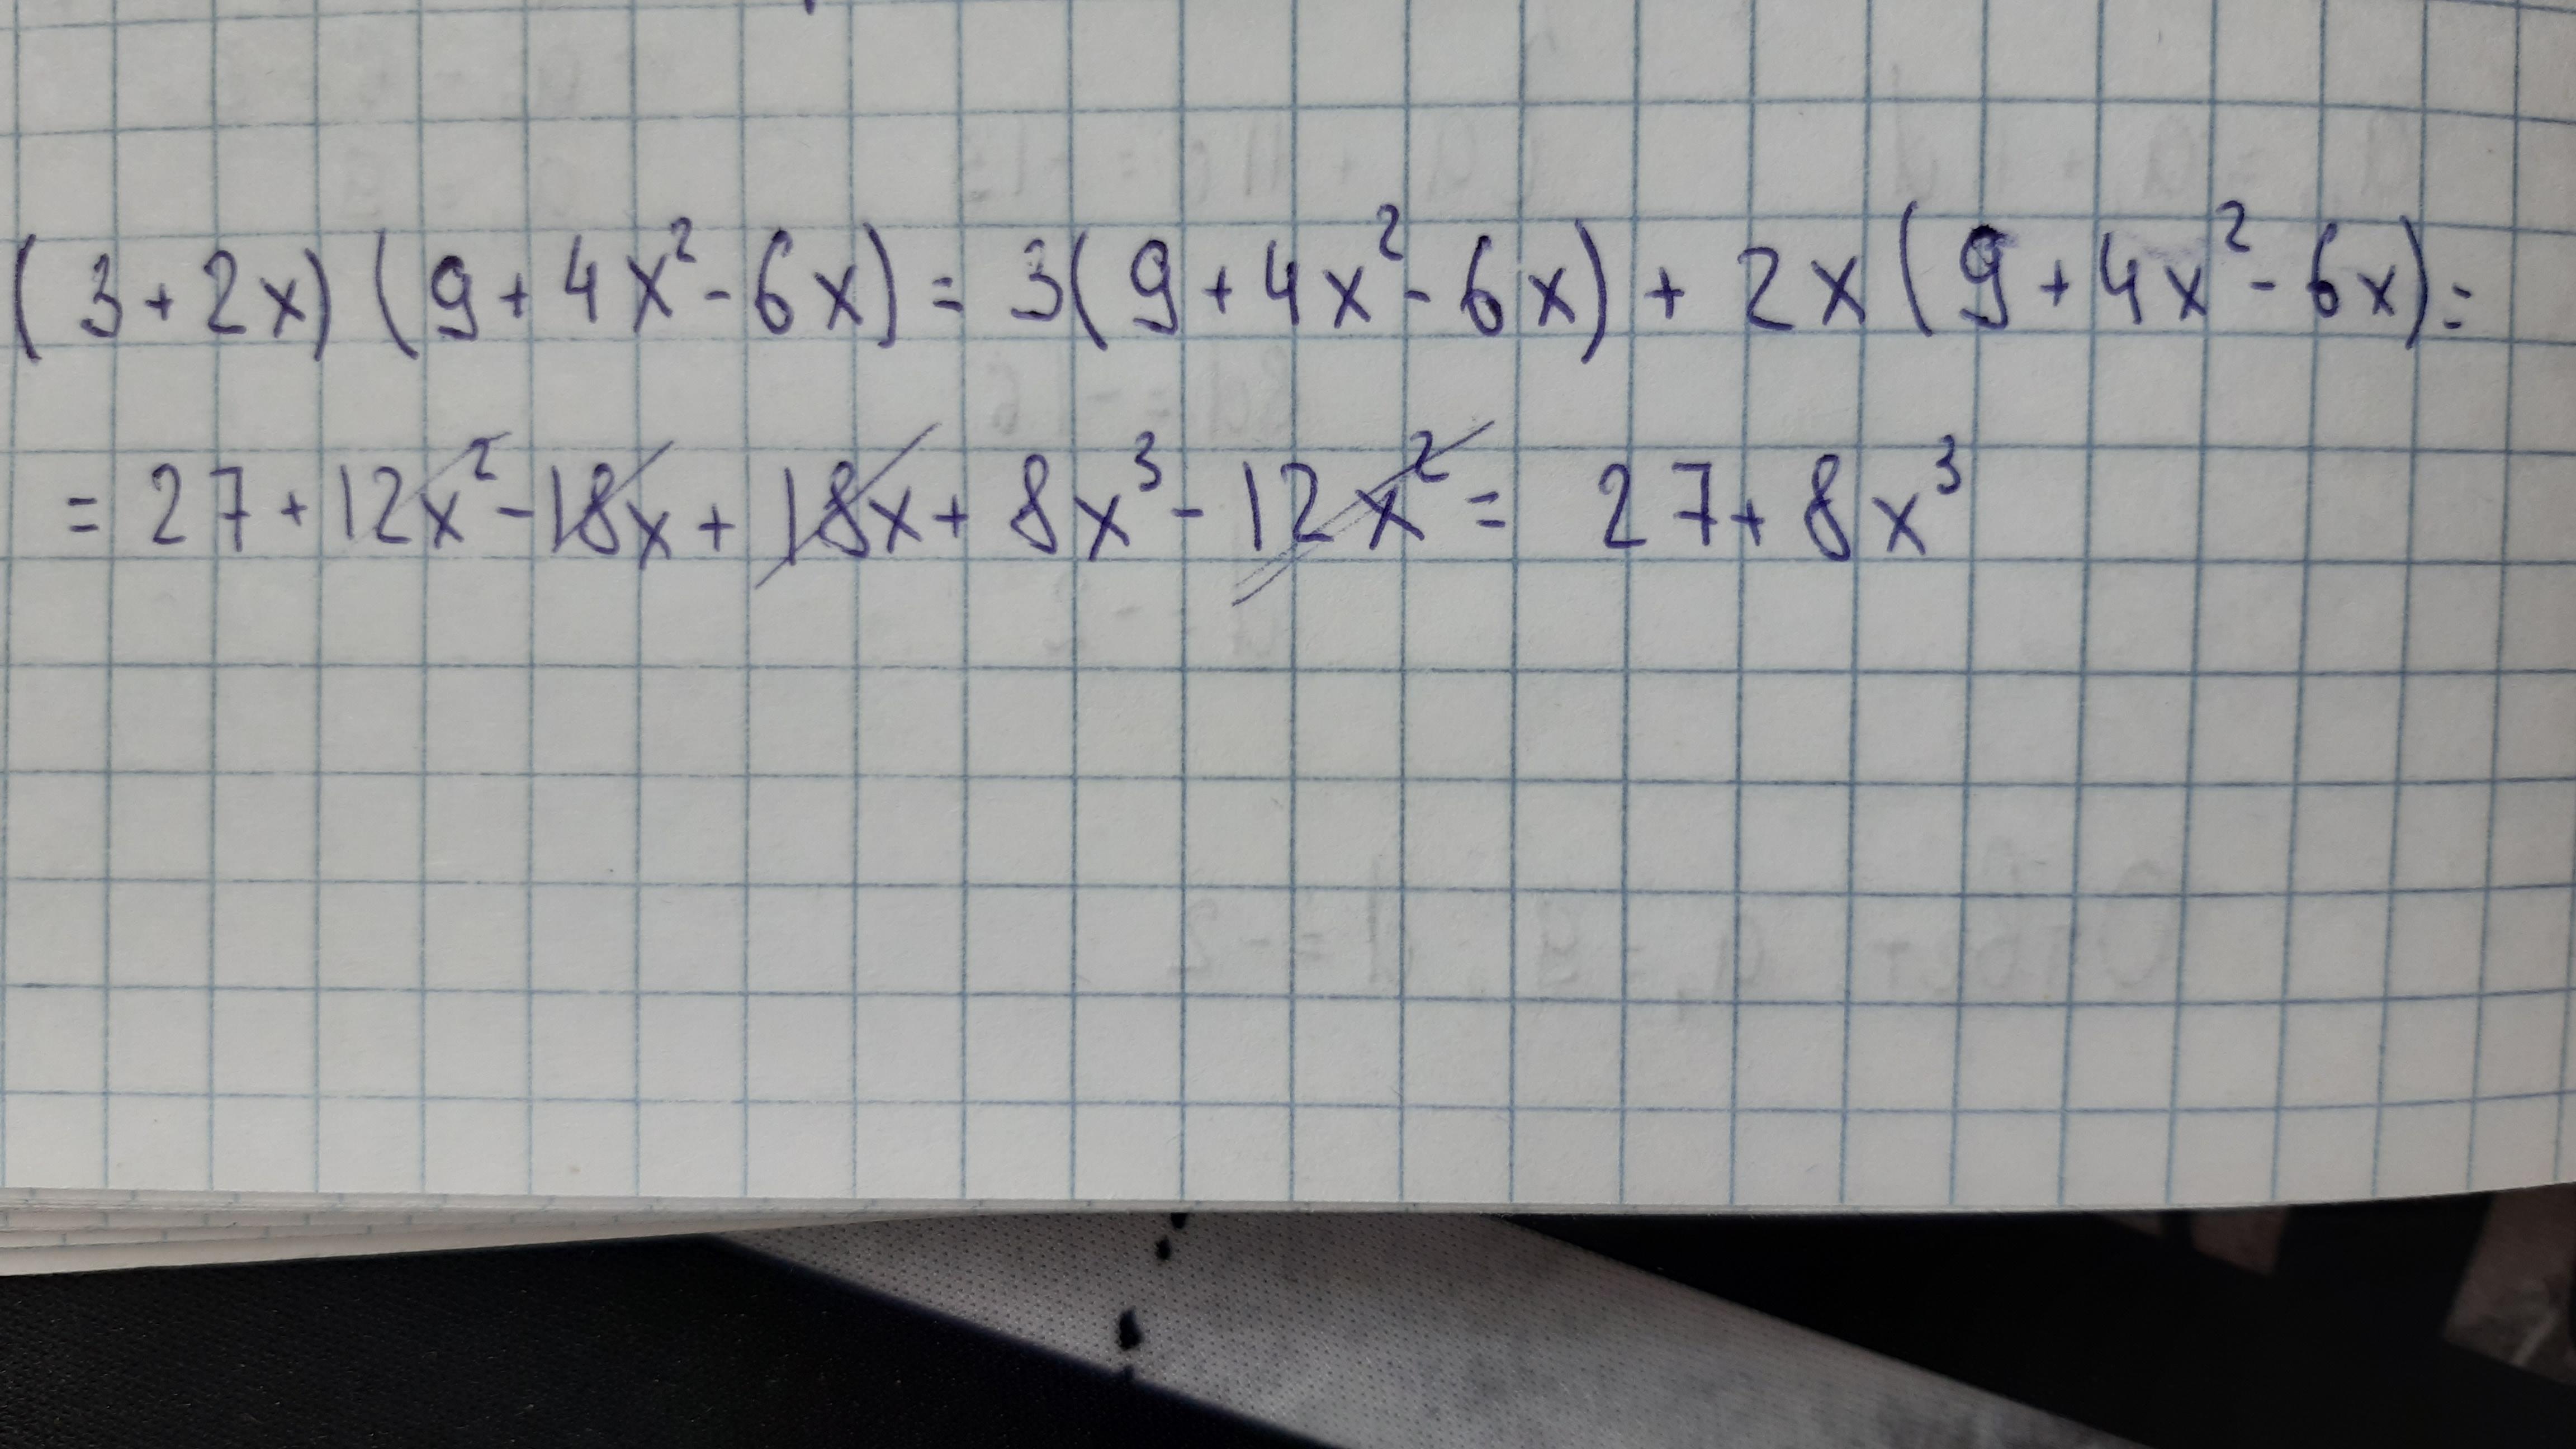 (3+2x)(9+4x²-6x)= 3(9+4x²-6x)+2x(9+4x²-6x)=
=27+12x²-18x+18x+8x³-12x²= 27+8x³